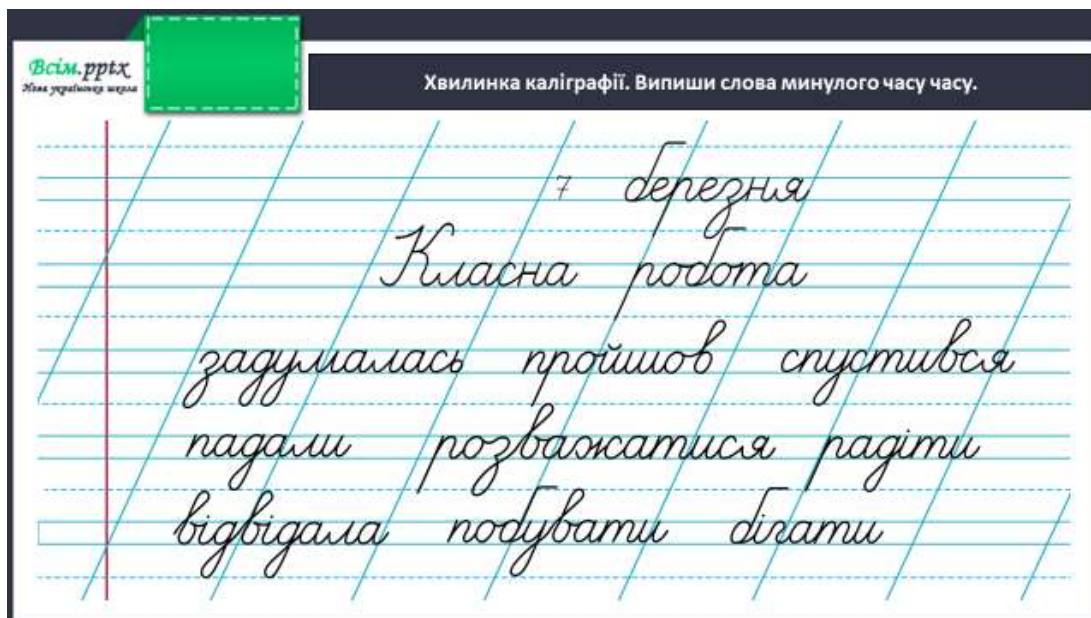 Всім.pptx
Нова українська школа
Хвилинка каліграфії. Випиши слова минулого часу часу.
7 березня
Класна робота
задумалась пройшов спустився
падали розважатися радіти
відвідала побувати бігати